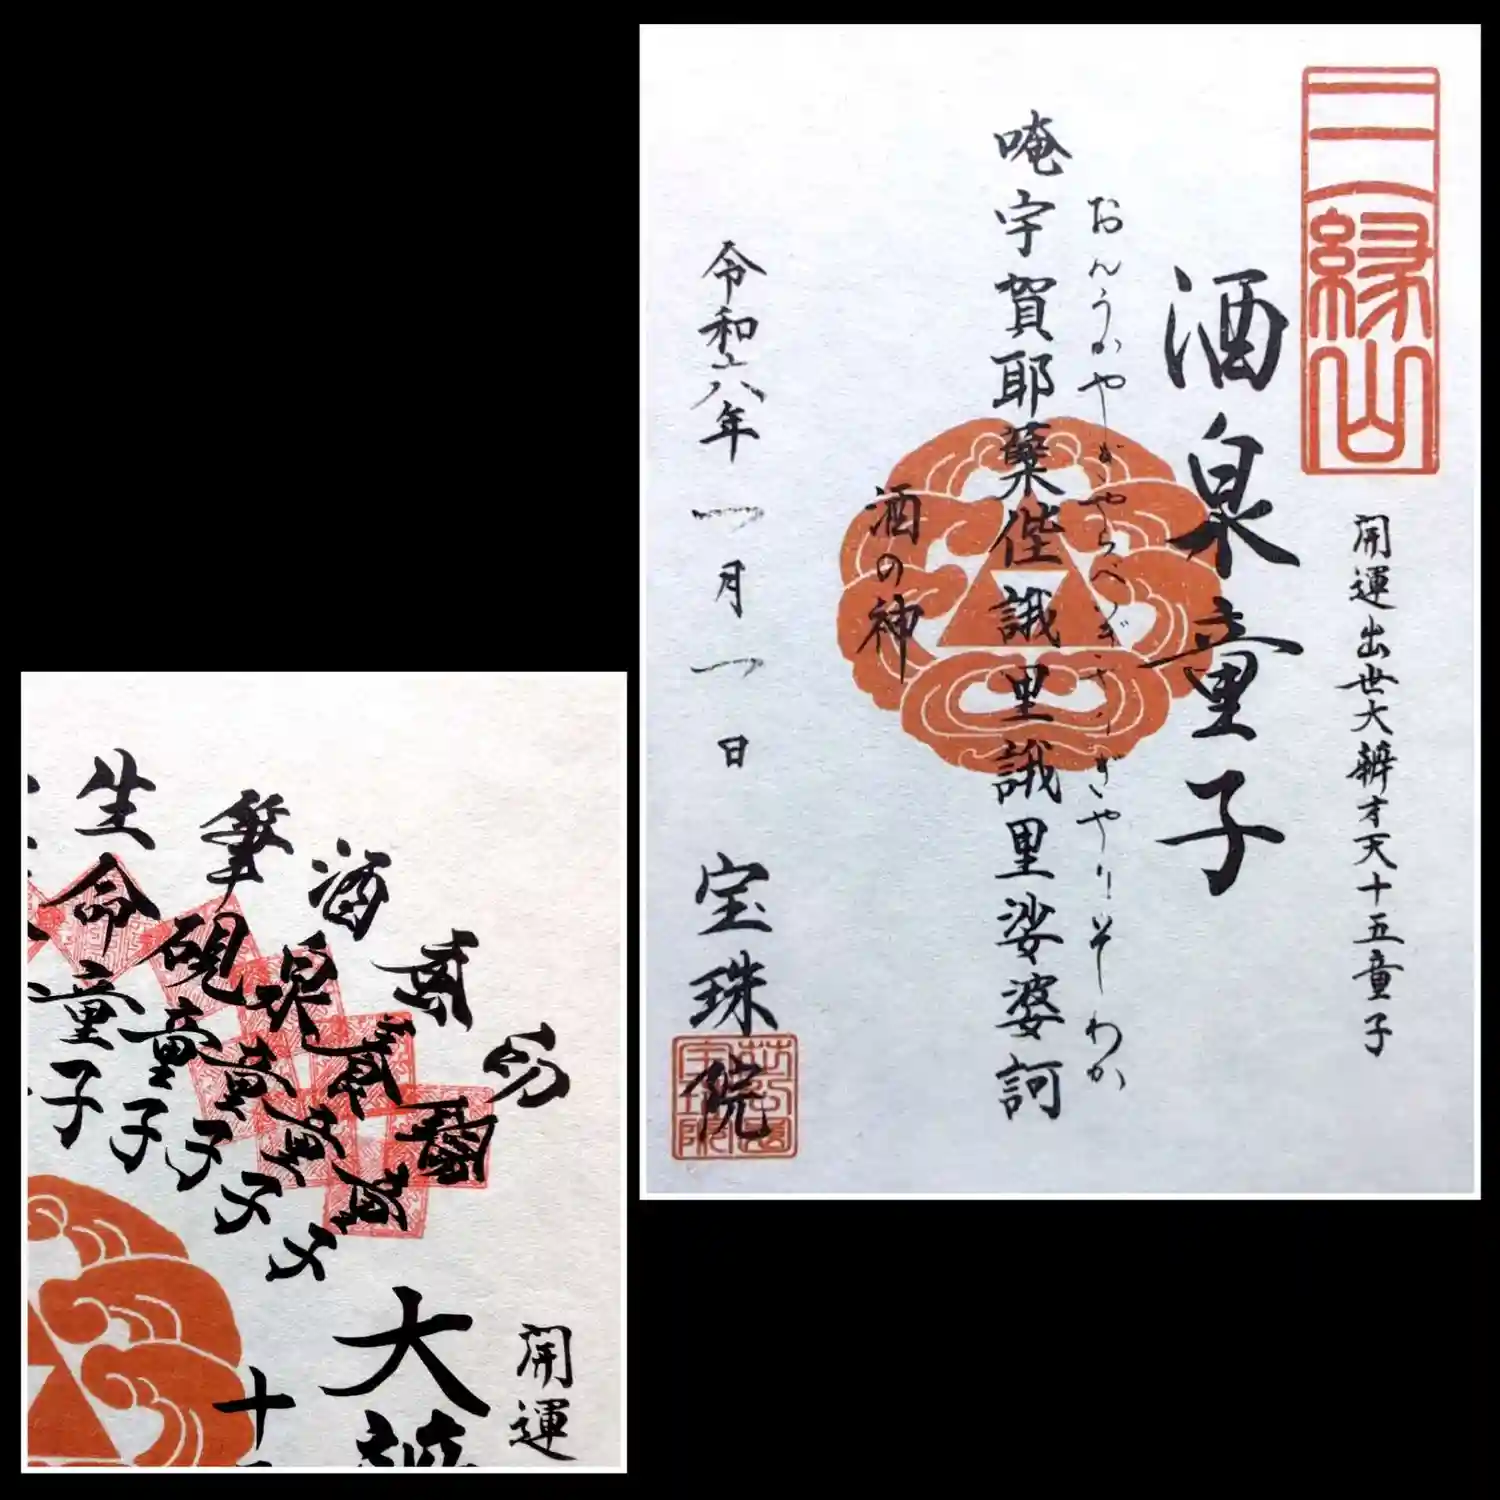 三縁山
開運出世大辨才天十五童子
酒泉童子
おんうがやじゃやぎゃらべいぎゃりぎゃりそわか
唵宇賀耶蘖侳誐里誐里娑婆訶
酒の神
令和六年一月一日
宝珠院
開運
大
十
酒泉童子
筆硯童子
生命童子